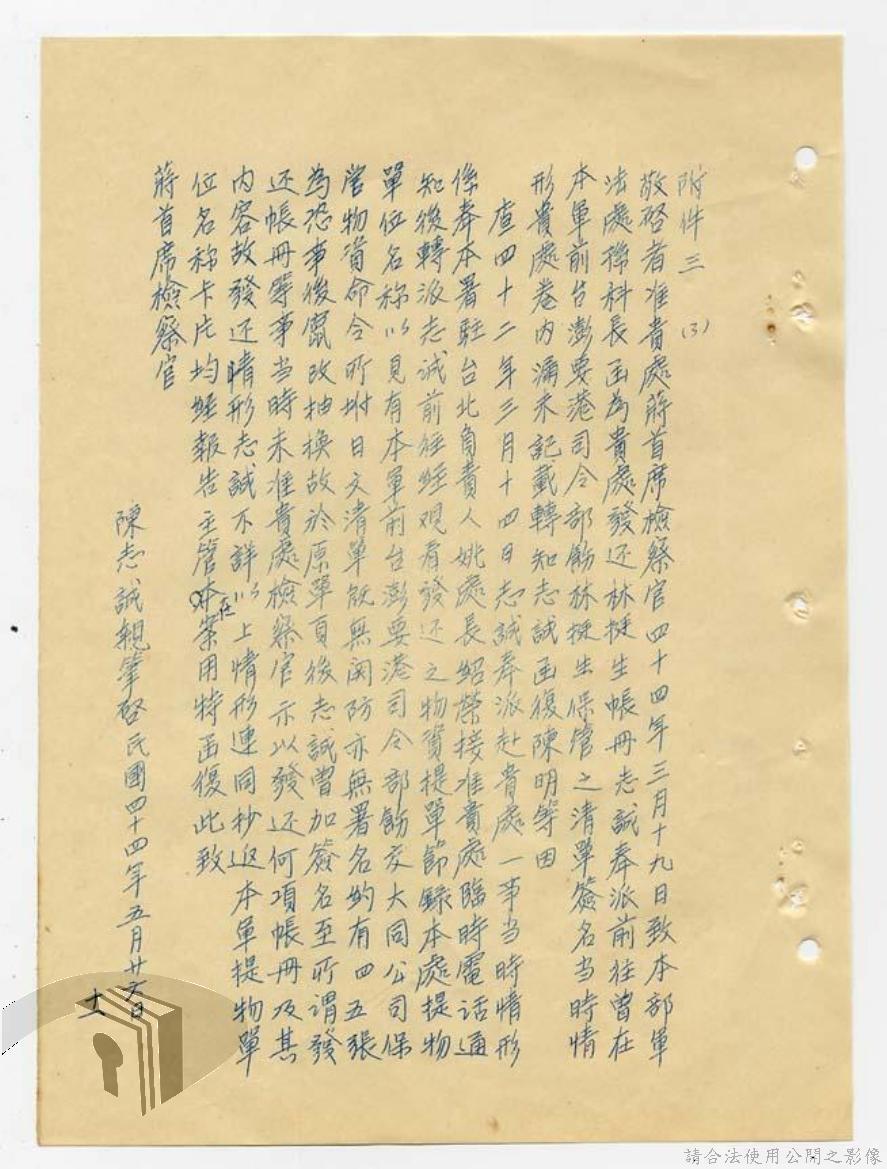 附件三 (3)
敬啓者准貴處蔣首席檢察官四十四年三月十九日致本部軍
法處楊科長函為貴處發还林挺生帳冊志誠奉派前往曾在
本軍前台澎要港司令部飭林挺生保管之清單簽名当時情
形貴處卷內漏未記載轉知志誠函復陳明等因
查四十二年三月十四日志誠奉派赴貴處一事当時情形
係奉本署駐台北負責人姚處長紹榮接准貴處臨時電话通
知後轉派志誠前往經观看發还之物資提單節錄本處提物
單位名称以見有本軍前台澎要港司令部飭交大同公司保
管物資命令所坿日文清單既無関防亦無署名約有四五張
為恐事後竄改抽換故於原單頁後志誠曾加簽名至所谓發
还帳冊等事当時未准貴處檢察官示以發还何項帳冊及其
內容故發还情形志誠不詳以上情形連同抄返本軍提物單
位名称卡片均經報告主管在案用特函復此致
蔣首席檢察官
陳志誠親筆啓民國四十四年五月廿六日
十一
請合法使用公開之影像